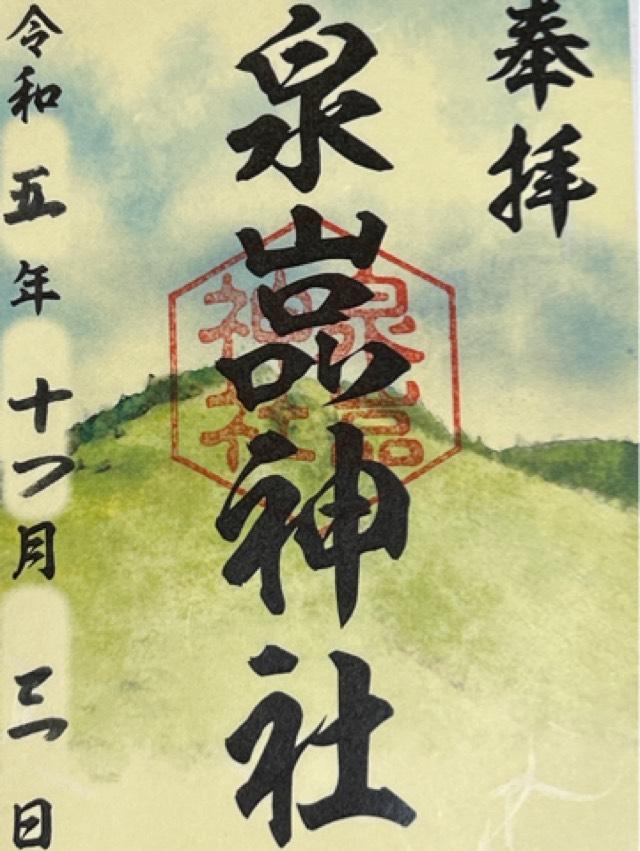 奉拝
泉嵓神社
令和五年十一月三日
泉嵓
神社